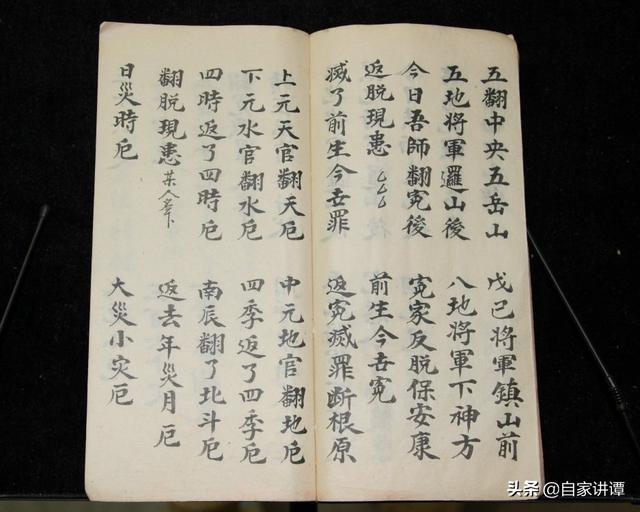 五翻中央五岳山 戊己將軍鎮山前
五地將軍邏山後 八地將軍下神方
今日吾師翻寃後 寃家反脱保安康
返脱現患 前生今世寃
滅了前生今世罪 返寃滅罪断根原
上元天官翻天厄 中元地官翻地厄
下元水官翻水厄 四季返了四季厄
四時返了四時厄 南辰翻了北斗厄
翻脱現患某人 返去年災月厄
日災時厄 大災小灾厄
头条 @自家讲谭